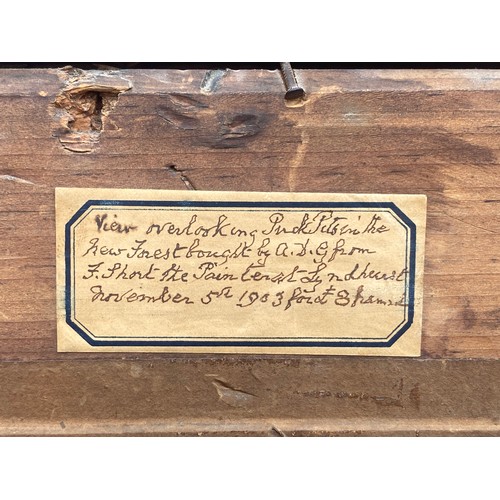 View overlooking Puck Pits in the
New Forest bought by A.D.G from
F. Short the Painter at Lyndhurst
November 5th 1903 for £ 8 framed